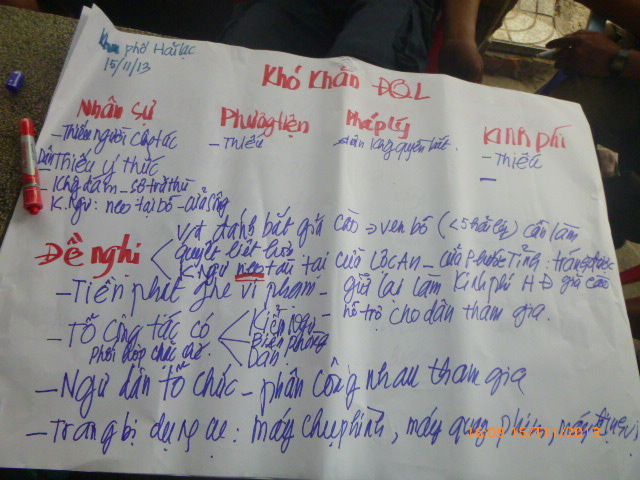 Khu phố Hải Lạc
15/11/13
Khó khăn ĐQL
Nhân sự
- Thiếu người công tác
Dân Thiếu ý thức
- Không dám - sợ trả thù
K. Ngư: neo tại bờ - cửa sông
Phương tiện
- Thiếu
Pháp lý
- dân không quyền bắt.
Kinh phí
- Thiếu
-
Đề nghị
vợt đánh bắt giã cào → ven bờ (< 5 hải lý) cần làm
quyết liệt hơn
K. ngư neo tàu tại cửa Lộc An - cửa Phước Tỉnh:
- Tiền phạt ghe vi phạm - giữ lại làm kinh phí HĐ giã cào
- hỗ trợ cho dân tham gia.
- Tổ công tác có
phối hợp chặt chẽ.
Kiểm ngư
Biên phòng
Dân
- Ngư dân tổ chức - phân công nhau tham gia
- Trang bị dụng cụ: máy chụp hình, máy quay phim, máy
15/11/2013